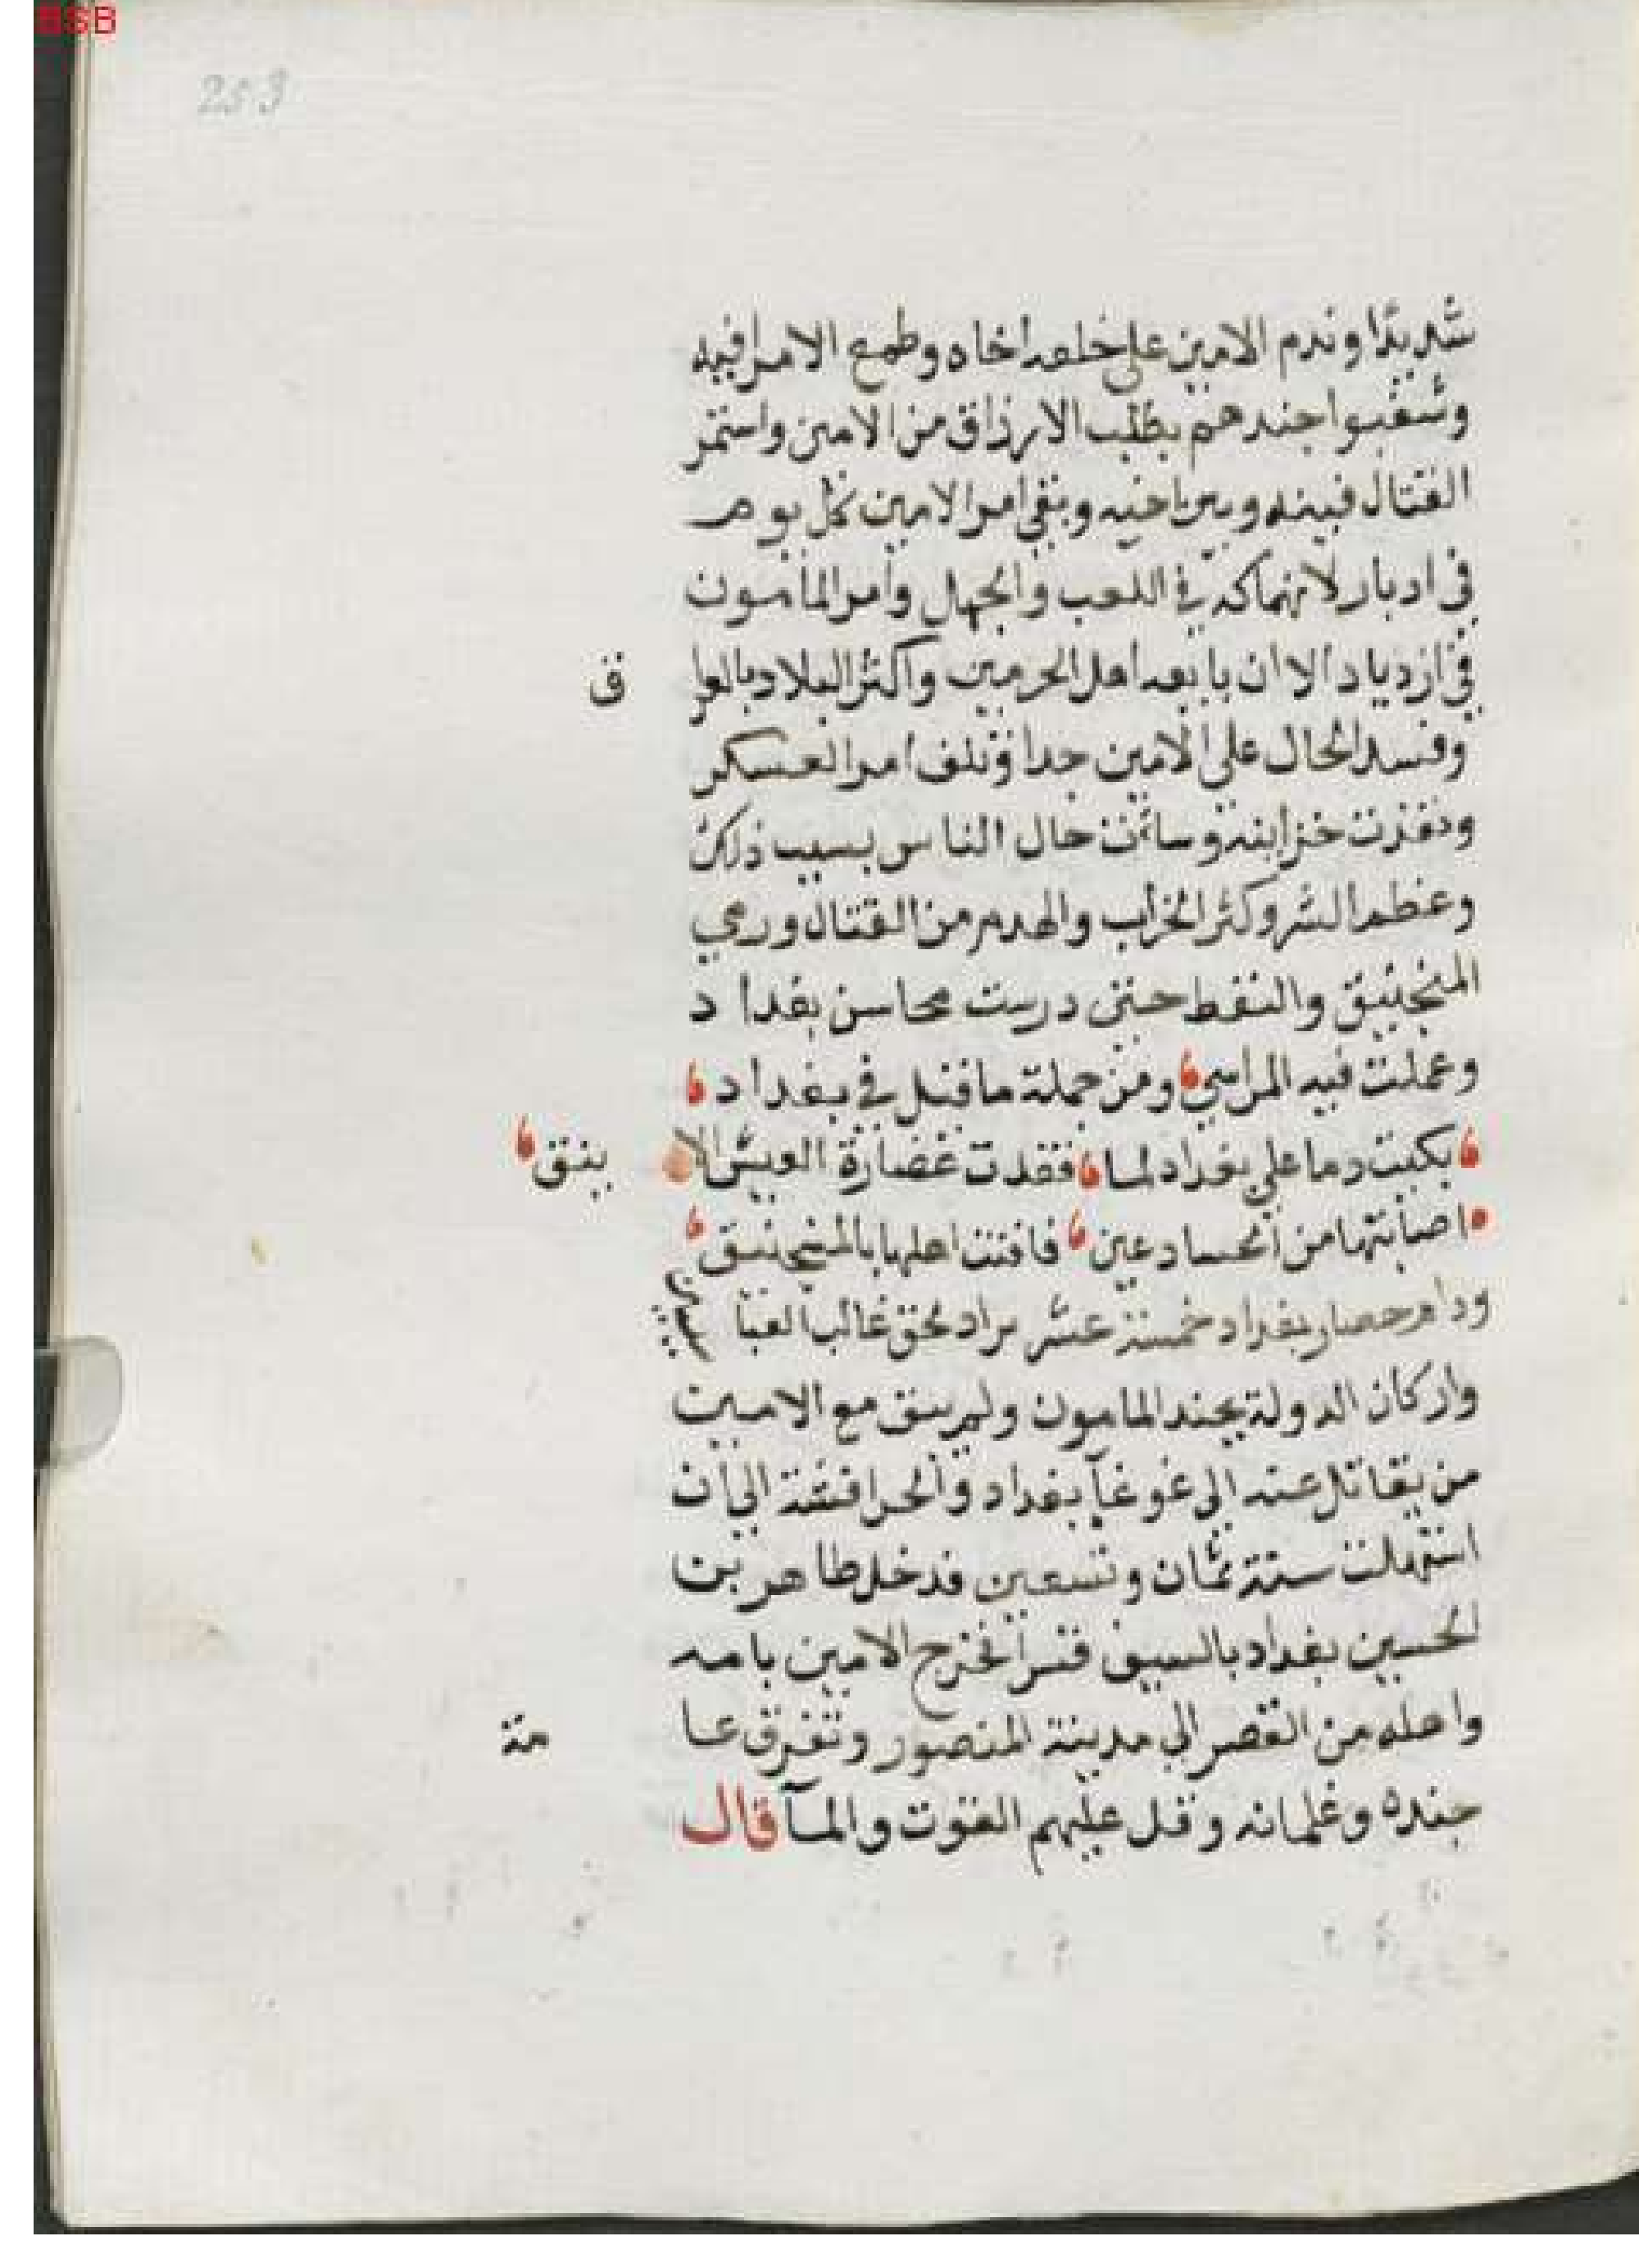 BSB
253
شديدًا وندم الامين على خلعه اخاه وطمع الامرا فيه
وشغبوا جندهم بطلب الارزاق من الامين واستمر
القتال فبينه وبين اخيه وبقى امر الامين كل يوم
في ادبار لانهماكه في اللعب والجهل وامر المأمون
في ازدياد الا ان بايعه اهل الحرمين واكثر البلاد بالعرا ق
وفسد الحال على الامين جدا وتلف امر العسكر
ونفذت خزاينه وساءت حال الناس بسبب ذلك
وعظم الشر وكثر الخراب والهدم من القتال ورمي
المنجنيق والنفط حتى درست محاسن بغدا د
وعملت فيه المراسي ومن جملة ما قيل في بغداد
بكيت دما علي بغداد لما فقدت غضارة العيش الا ينق
اصابتها من الحساد عين فافنت اهلها بالمنجنيق
ودام حصار بغداد خمسة عشر غالب العبا سيين
واركان الدولة بجند المامون ولم يبق مع الامين
من يقاتل عنه الى غوغآ بغداد والحرافشة الى ان
استهلت سنة ثمان وتسعين فدخل طاهر بن
الحسين بغداد بالسيف قسرا فخرج الامين بامه
واهله من القصر الي مدينة المنصور وتفرق عا مة
جنده وغلمانه وقل عليهم القوت والمآ قال